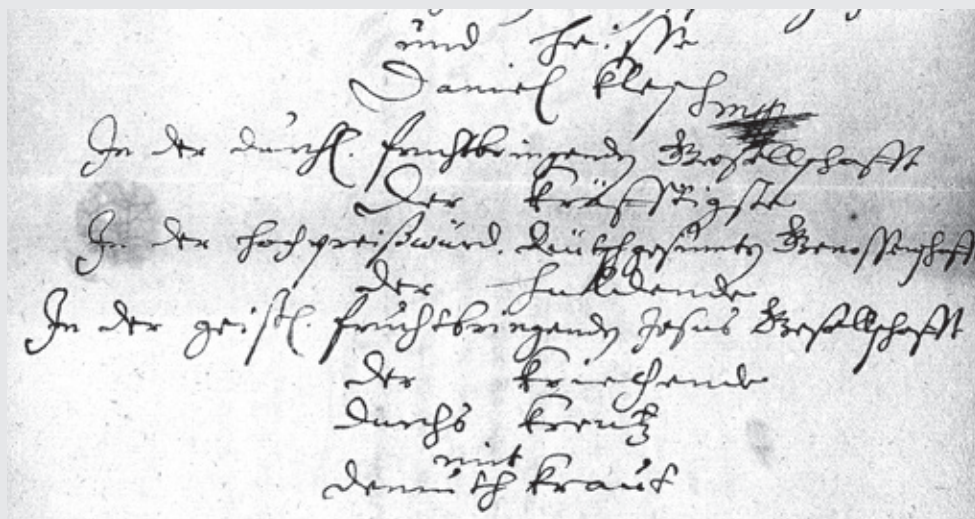 und heisse
Daniel Klesch
In der durchl. fruchtbringenden Gesellschafft
Der Kräfftigste
In der hochpreißwürd. deutschgesinnten Genossenschafft
der Huldende
In der geistl. fruchtbringenden Jesus Gesellschafft
der Kriechende
durchs Kreutz
mit
demuth Kraut